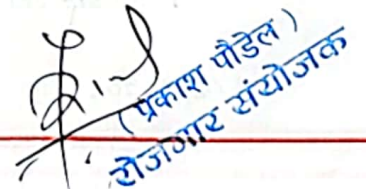 (प्रकाश पौडेल)
रोजगार संयोजक